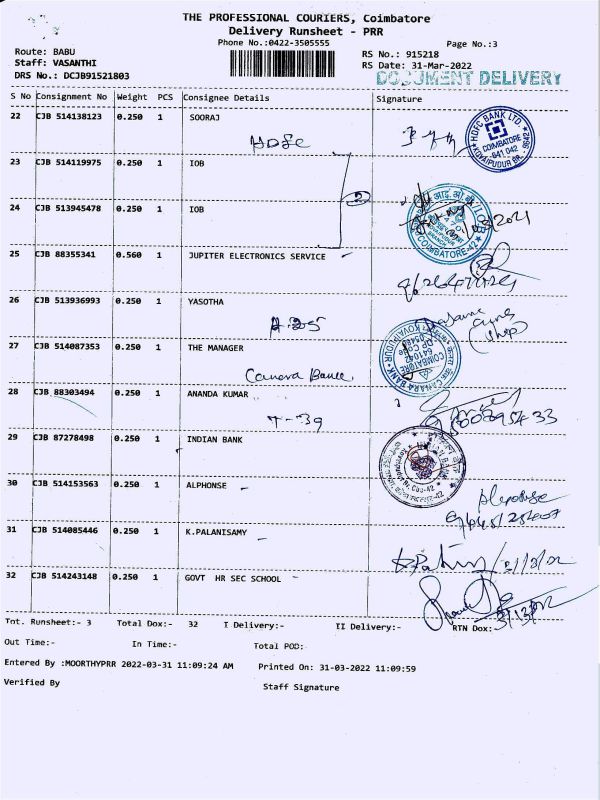 THE PROFESSIONAL COURIERS, Coimbatore
Delivery Runsheet - PRR
Phone No.:0422-3505555
Page No.:3
Route: BABU
RS No.: 915218
Staff: VASANTHI
RS Date: 31-Mar-2022
DRS No.: DCJB91521803
DOCUMENT DELIVERY
S No Consignment No Weight PCS Consignee Details Signature
22 CJB 514138123 0.250 1 SOORAJ
HDFC
HDFC BANK LTD. COIMBATORE -641 042
23 CJB 514119975 0.250 1 IOB
2
24 CJB 513945478 0.250 1 IOB
COIMBATORE-42
25 CJB 88355341 0.560 1 JUPITER ELECTRONICS SERVICE -
26 CJB 513936993 0.250 1 YASOTHA
27 CJB 514087353 0.250 1 THE MANAGER
Canara Bank
CANARA BANK KOVAIPUDUR COIMBATORE
28 CJB 88303494 0.250 1 ANANDA KUMAR
29 CJB 87278498 0.250 1 INDIAN BANK
30 CJB 514153563 0.250 1 ALPHONSE -
Alephonse
31 CJB 514085446 0.250 1 K.PALANISAMY -
32 CJB 514243148 0.250 1 GOVT HR SEC SCHOOL -
Tnt. Runsheet:- 3 Total Dox:- 32 I Delivery:- II Delivery:- RTN Dox:-
Out Time:- In Time:- Total POD:-
Entered By :MOORTHYPRR 2022-03-31 11:09:24 AM Printed On: 31-03-2022 11:09:59
Verified By Staff Signature